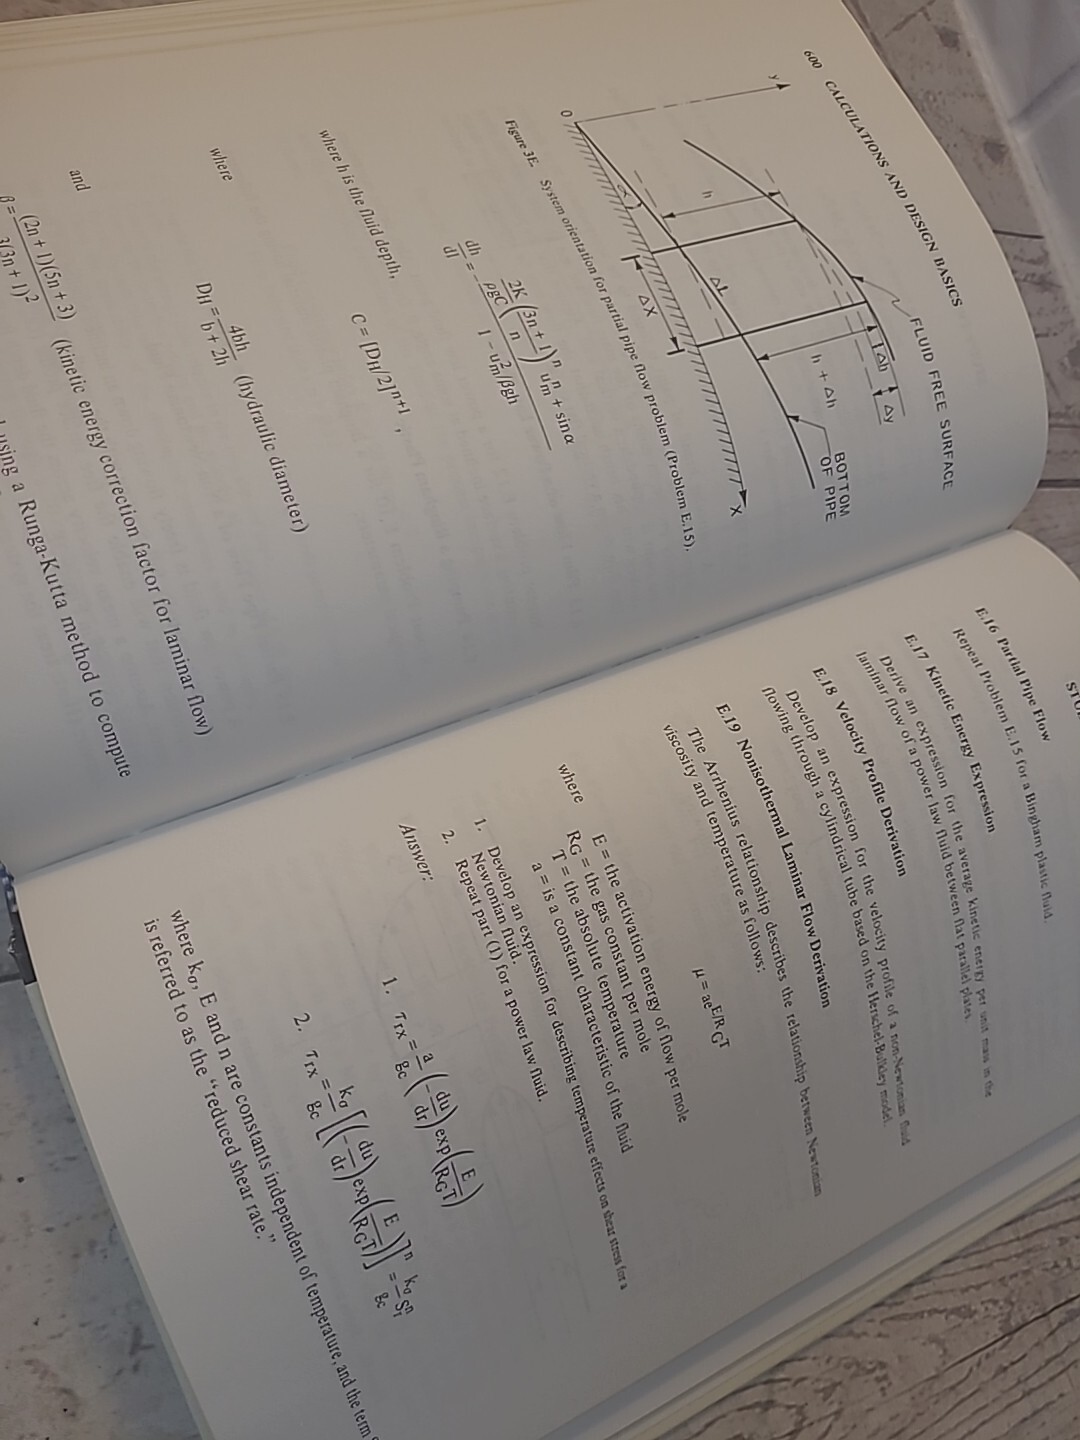 600 CALCULATIONS AND DESIGN BASICS
FLUID FREE SURFACE
y
h
Δh
Δy
h + Δh
BOTTOM
OF PIPE
ΔL
α
ΔX
0
X
Figure 3E. System orientation for partial pipe flow problem (Problem E.15).
dh/dl = - (2K/ρgC ((3n + 1)/n)ⁿ uₘⁿ + sinα) / (1 - uₘ²/βgh)
where h is the fluid depth,
C = [D_H/2]ⁿ⁺¹ ,
where
D_H = 4bh/(b + 2h) (hydraulic diameter)
and
β = (2n + 1)(5n + 3)/3(3n + 1)² (kinetic energy correction factor for laminar flow)
using a Runga-Kutta method to compute
E.16 Partial Pipe Flow
Repeat Problem E.15 for a Bingham plastic fluid.
E.17 Kinetic Energy Expression
Derive an expression for the average kinetic energy per unit mass in the
laminar flow of a power law fluid between flat parallel plates.
E.18 Velocity Profile Derivation
Develop an expression for the velocity profile of a non-Newtonian fluid
flowing through a cylindrical tube based on the Herschel-Bulkley model.
E.19 Nonisothermal Laminar Flow Derivation
The Arrhenius relationship describes the relationship between Newtonian
viscosity and temperature as follows:
μ = ae^(E/R_G T)
where E = the activation energy of flow per mole
R_G = the gas constant per mole
T = the absolute temperature
a = is a constant characteristic of the fluid
1. Develop an expression for describing temperature effects on shear stress for a
Newtonian fluid.
2. Repeat part (1) for a power law fluid.
Answer:
1. τ_rx = a/g_c (-du/dr) exp(E/R_G T)
2. τ_rx = k_σ/g_c [(-du/dr) exp(E/R_G T)]ⁿ = k_σ/g_c S_rⁿ
where k_σ, E and n are constants independent of temperature, and the term
is referred to as the “reduced shear rate.”